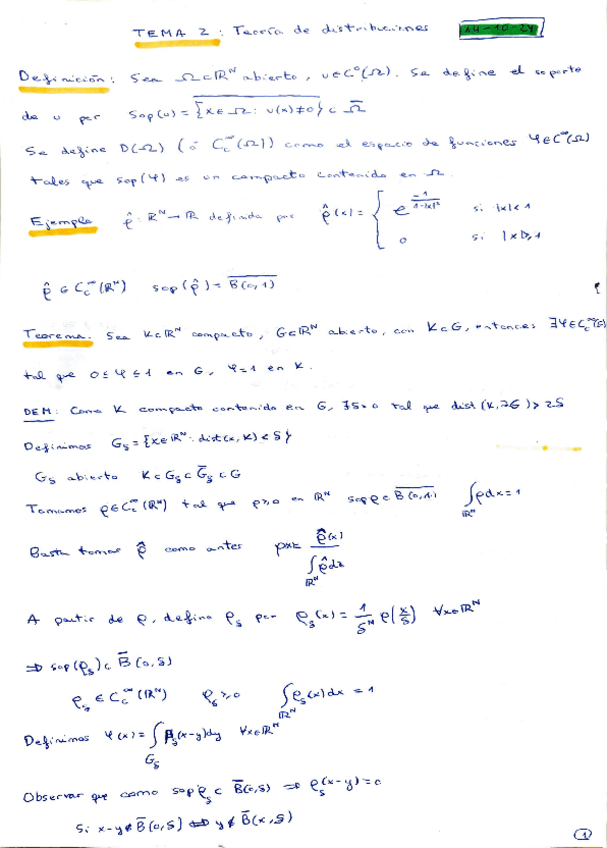 TEMA 2 : Teoría de distribuciones 14-10-24
Definición: Sea Ω⊂ℝᴺ abierto, u∈C⁰(Ω). Se define el soporte
de u por Sop(u) = \overline{{x∈Ω: u(x)≠0}} ⊂ \overline{Ω}
Se define D(Ω) (ó C_c^∞(Ω)) como el espacio de funciones φ∈C^∞(Ω)
tales que sop(φ) es un compacto contenido en Ω.
Ejemplo ρ̂: ℝᴺ→ℝ definida por ρ̂(x) = { e^{-1/(1-|x|²)} si |x|<1
0 si |x|≥1
ρ̂ ∈ C_c^∞(ℝᴺ) sop(ρ̂) = \overline{B(0,1)}
Teorema. Sea K⊂ℝᴺ compacto, G⊂ℝᴺ abierto, con K⊂G, entonces ∃φ∈C_c^∞(G)
tal que 0≤φ≤1 en G, φ=1 en K.
DEM: Como K compacto contenido en G, ∃δ>0 tal que dist(K,∂G)>2δ
Definimos G_δ = {x∈ℝᴺ: dist(x,K)<δ}
G_δ abierto K⊂G_δ⊂\overline{G}_δ⊂G
Tomamos ρ∈C_c^∞(ℝᴺ) tal que ρ≥0 en ℝᴺ sop ρ⊂\overline{B(0,1)} ∫_{ℝᴺ} ρdx=1
Basta tomar ρ̂ como antes ρ(x)= ρ̂(x) / ∫_{ℝᴺ} ρ̂dx
A partir de ρ, defino ρ_δ por ρ_δ(x) = 1/δᴺ ρ(x/δ) ∀x∈ℝᴺ
⇒ sop(ρ_δ)⊂\overline{B}(0,δ)
ρ_δ ∈ C_c^∞(ℝᴺ) ρ_δ≥0 ∫_{ℝᴺ} ρ_δ(x)dx = 1
Definimos φ(x) = ∫_{G_δ} ρ_δ(x-y)dy ∀x∈ℝᴺ
Observar que como sop ρ_δ ⊂ \overline{B}(0,δ) ⇒ ρ_δ(x-y)=0
Si x-y∉\overline{B}(0,δ) ⇔ y∉\overline{B}(x,δ)
1